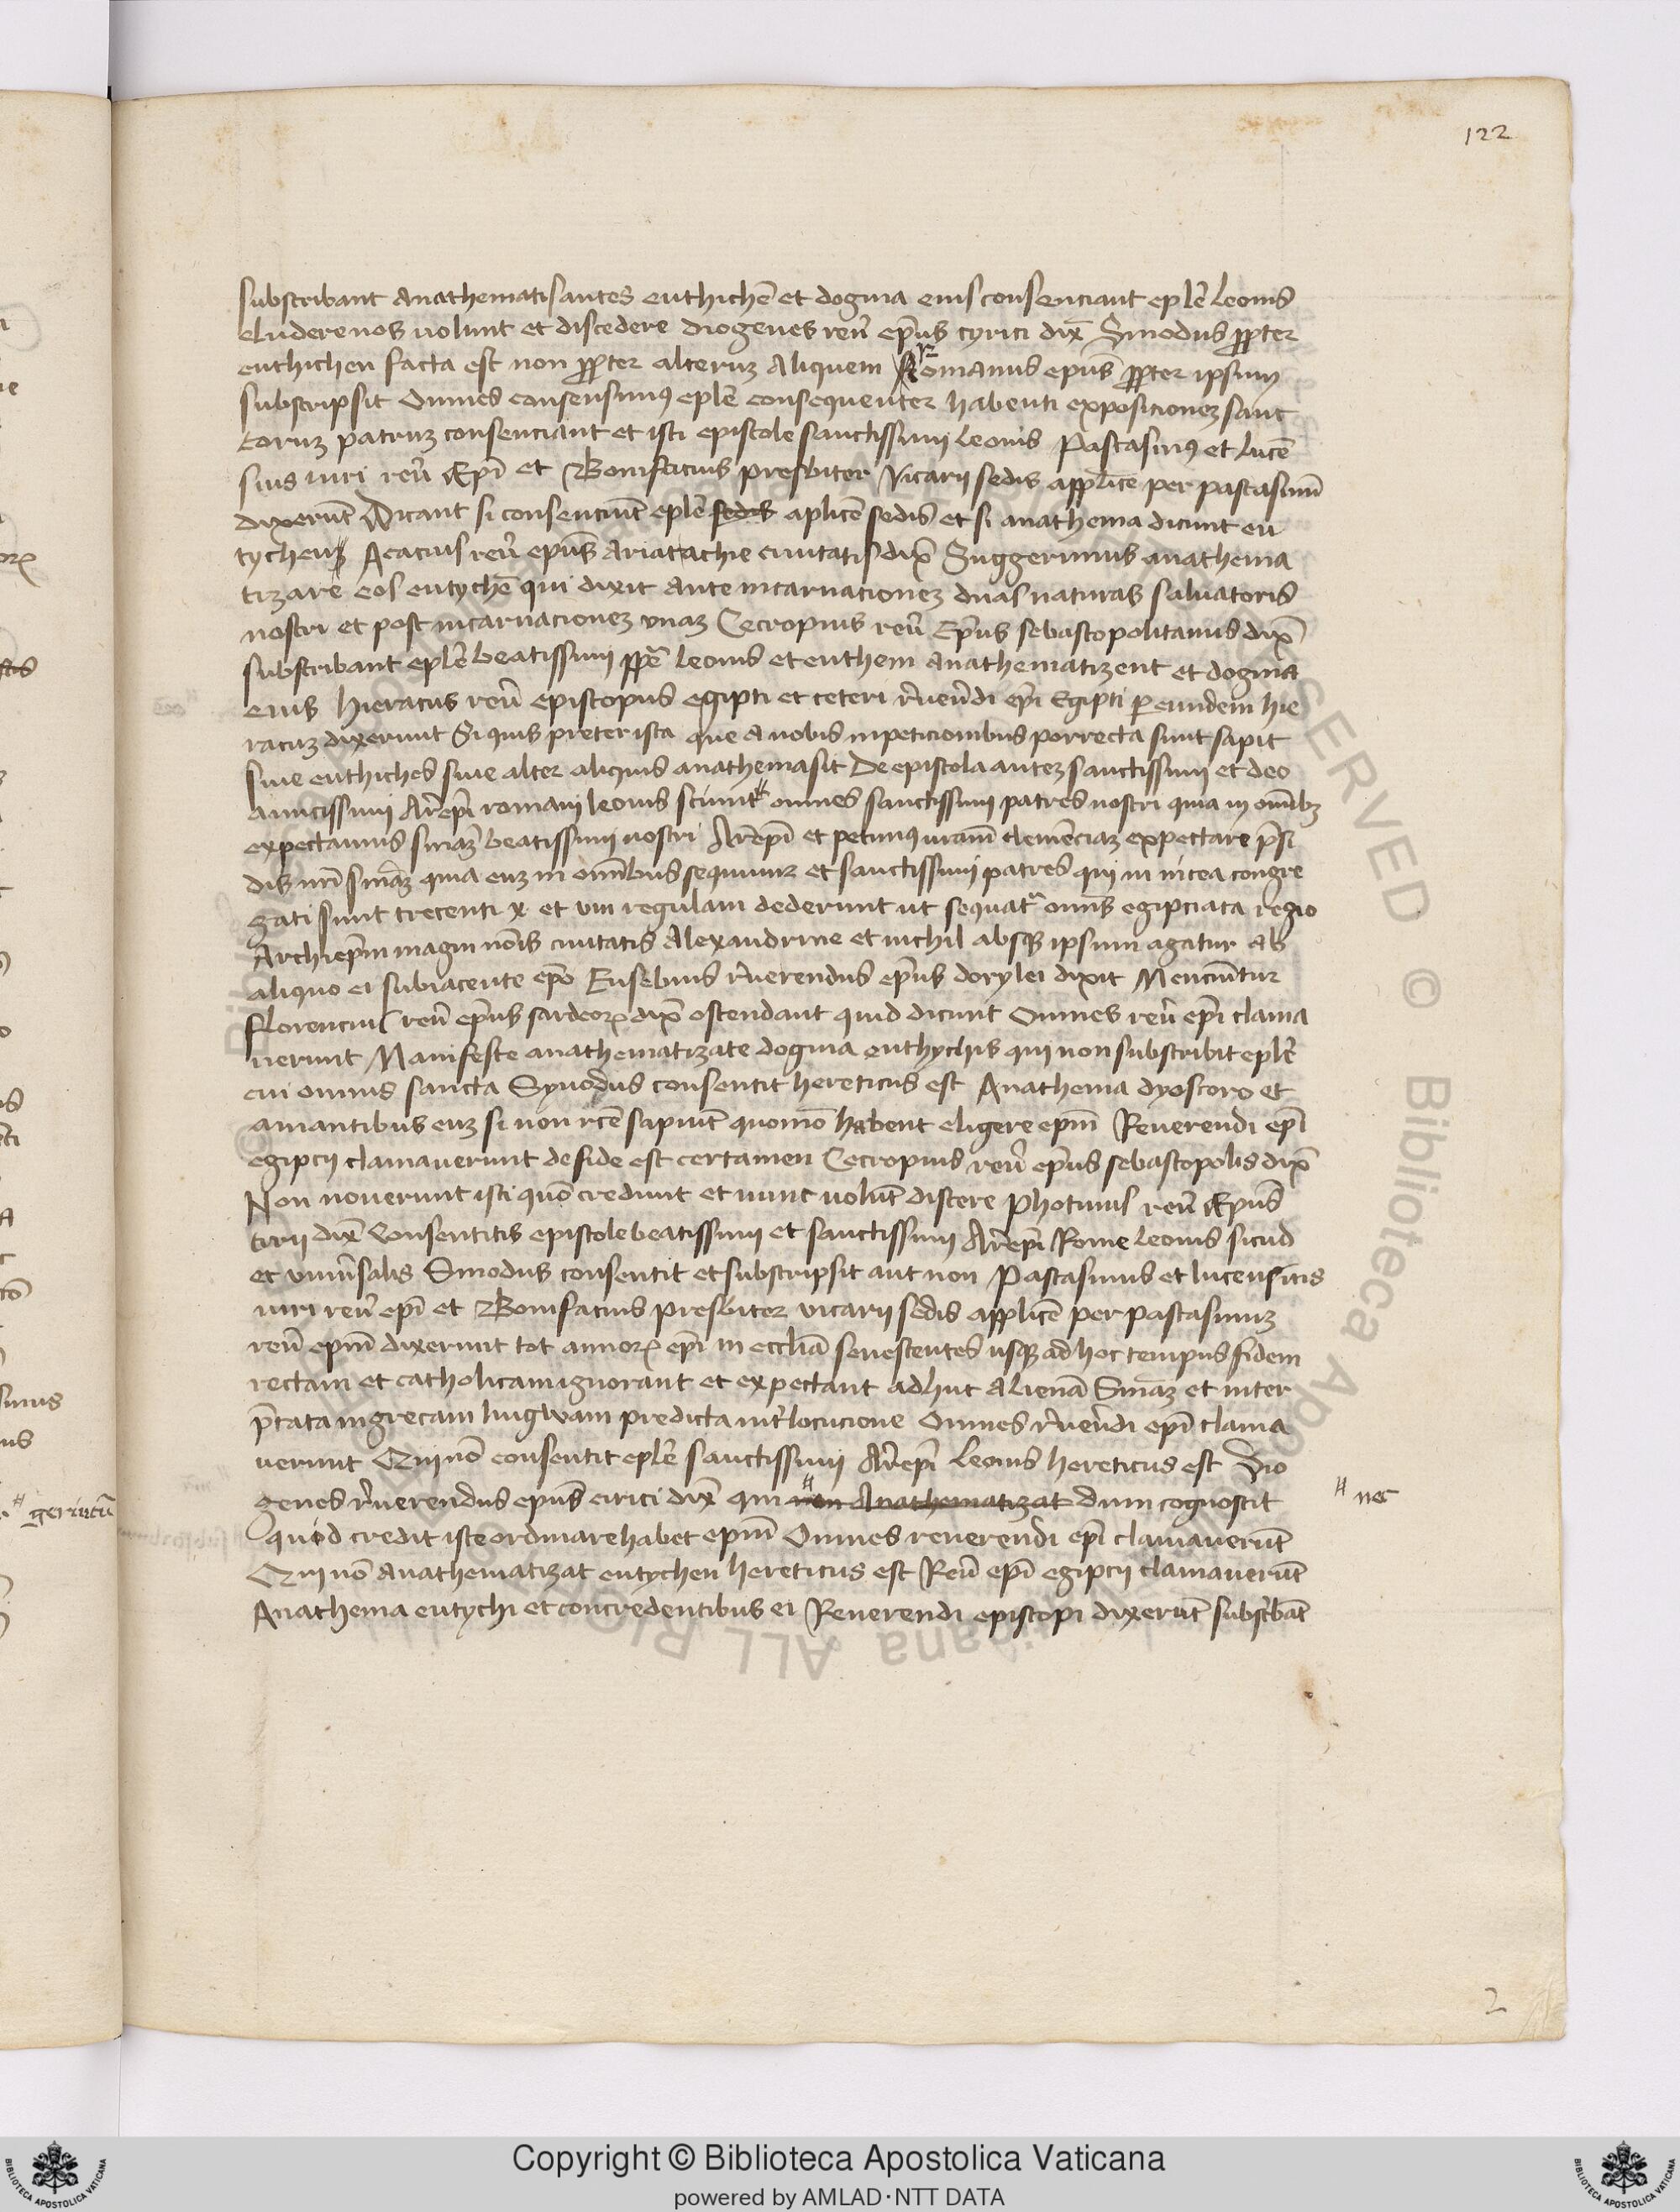 122
subscribant anathematisantes euthichē et dogma eius consenciant eplē leonis
eludere nos uolunt et discedere Diogenes reuͥ ep̄us cyrici dix̄ Sinodus ꝓpter
euthichen facta est non ꝓpter alteruȝ aliquem Romanus epūs ꝓpter ipsum
subscripsit Omnes consensimꝰ eplē consequenter habenti exposicioneȝ sanc
toruȝ patruȝ consenciant et isti epistole sanctissimi leonis Pascasinꝰ et lucē
sius uiri reuͥ Ep̄i et Bonifacius presbiter Vicarij sedis applicē per pascasinū
dixerūt Dicant si consenciūt eplē sedis aplicē sedis et si anathema dicunt eu
tycheuȝ Acacius reuͥ epūs ariatachie ciuitatis dix̄ Suggerimus anathema
tizare eos eutychē qui dixit ante incarnacioneȝ duas naturas saluatoris
nostri et post incarnacioneȝ vnaȝ Cecropius reuͥ Ep̄us sebastopolitanus dix̄
subscribant eplē beatissimi pp̄e leonis et euthem anathematizent et dogma
eius Hieracus reuͥ episcopus egipti et ceteri r̄uerēdi ep̄i Egipti ꝑ eundem hie
racuȝ dixerunt Si quis preter ista que a nobis in peticionibus porrecta sunt sapit
siue euthiches siue alter aliquis anathema sit De epistola auteȝ sanctissimi et deo
amicissimi Ar̄ep̄i romani leonis sciunt omnes sanctissimi patres nostri quia in omībȝ
expectamus sniaȝ beatissimi nostri Ar̄ep̄i et petimꝰ uram̄ clemēciaȝ expectare p̄si
dis nr̄i sniāȝ quia euȝ in omībus sequimur et sanctissimi patres qui in nicea congre
gati sunt trecenti x et viii regulam dederunt ut sequatᷓ omīs egipciata regio
Archiep̄m magni nōis ciuitatis Alexandrine et nichil absqȝ ipsum agatur ab
aliquo ei subiacente epō Eusebius r̄uerendus ep̄us dorylei dixit Menciūtur
Florencius reuͥ ep̄us sardeoꝝ dix̄ ostendant quid dicunt Omnes reuͥ ep̄i clama
uerunt Manifeste anathematizate dogma euthychis qui non subscribit eplē
cui omnis sancta Synodus consentit hereticus est Anathema dyoscoro et
amantibus euȝ si non rc̄e sapiūt quomō habent eligere ep̄m Reuerendi ep̄i
egipcij clamauerunt de fide est certamen Cecropius reuͥ ep̄us sebastopolis dix̄
Non nouerunt isti quō credunt et nunc uolūt discere Photinus reuͥ Epūs
tirij dix̄ Consentitis epistole beatissimi et sanctissimi Ar̄ep̄i Rome leonis sicud
et vniūsalis Sinodus consentit et subscripsit aut non Pascasinus et lucensius
uiri reuͥ ep̄i et Bonifacius presbiter vicarij sedis applicē per pascasinuȝ
reuͥ ep̄m dixerunt tot annoꝝ ep̄i in eccliā senescentes usqȝ ad hoc tempus fidem
rectam et catholicam ignorant et expectant adhuc alienā Sniāȝ et inter
p̄tata in grecam lingwam predicta int̄locucione Omnes r̄uerēdi ep̄i clama
uerunt Qui nō consentit eplē sanctissimi Ar̄ep̄i leonis hereticus est Dio
genes r̄uerendus epūs cirici dix̄ qui non Anathematizat dum cognoscit
nec
quod credit iste ordinare habet ep̄m Omnes reuerendi ep̄i clamauerūt
Qui nō anathematizat eutychen hereticus est Reuͥ ep̄i egipcij clamauerūt
Anathema eutychi et concredentibus ei Reuerendi episcopi dixerūt subscͥbāt
2
Copyright © Biblioteca Apostolica Vaticana
powered by AMLAD·NTT DATA